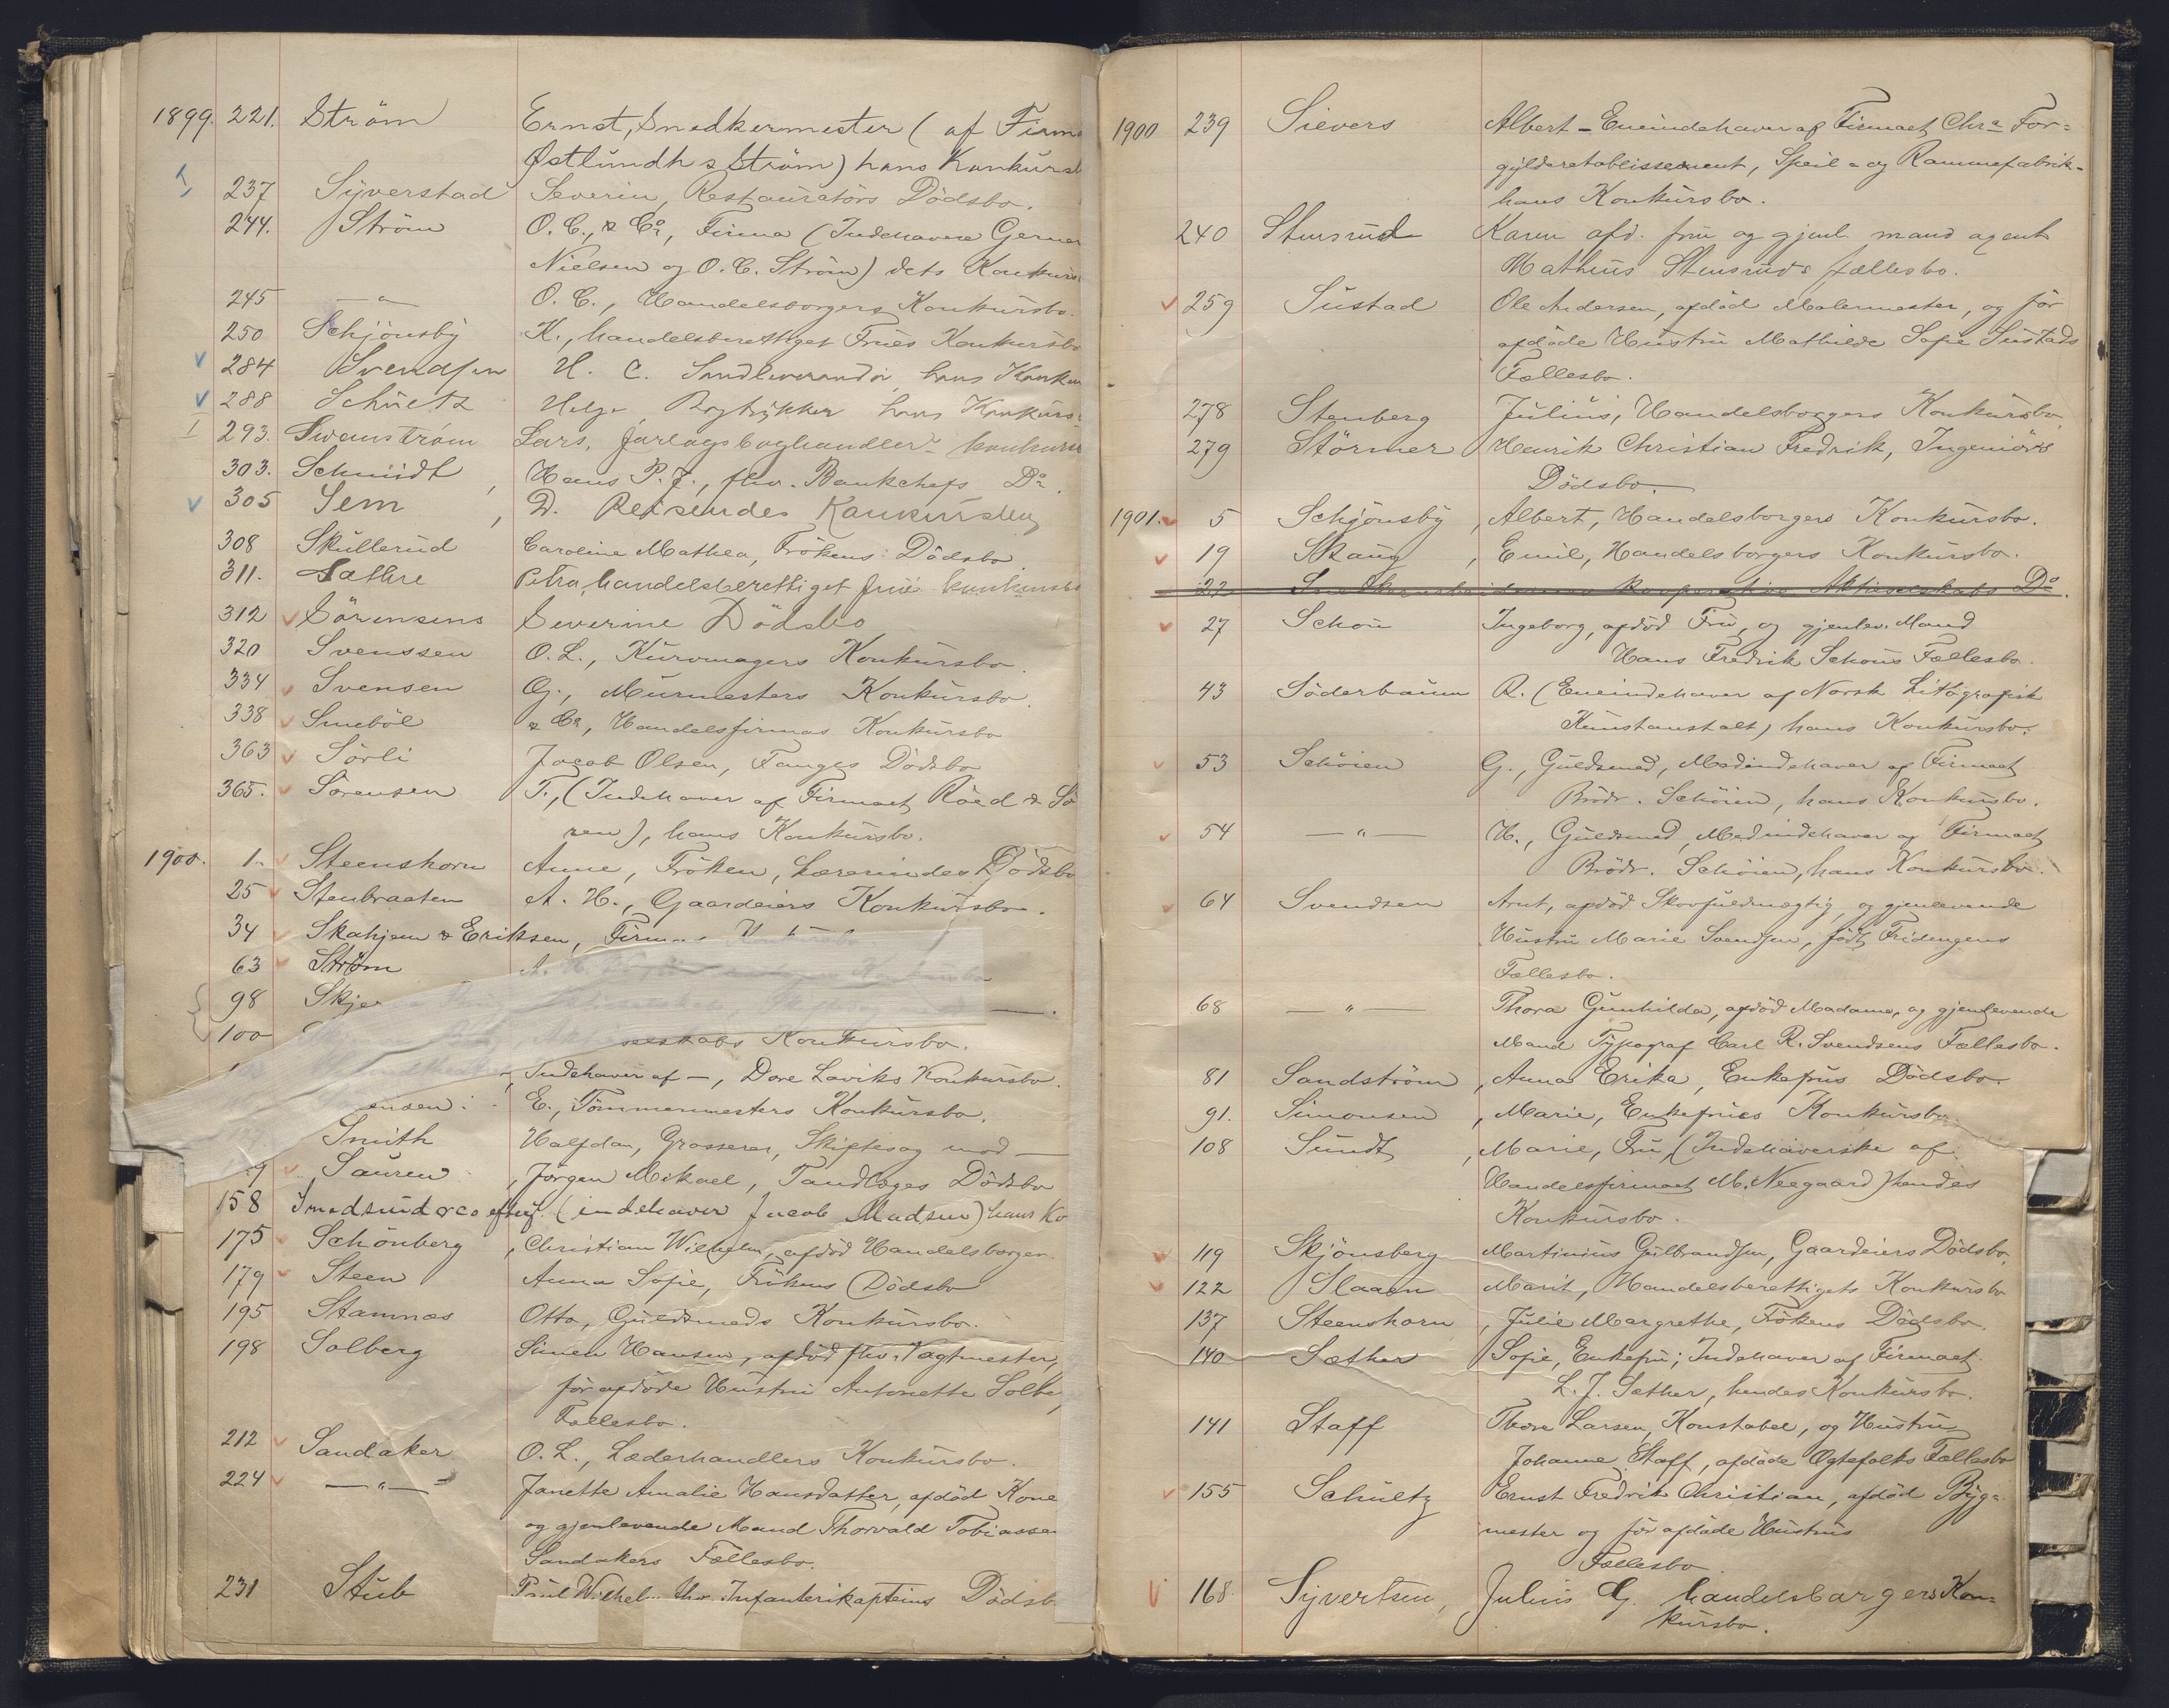 1899. 221. Ström Ernst, Snedkermester (af Firma
Østlundh & Ström) hans Konkursb
237 Syverstad Severin, Restauratörs Dödsbo.
244. Ström O. C., & Co, Firma (Indehavere Gerner
Nielsen og O. C. Ström) dets Konkurs
245 —"— O. C., Handelsborgers Konkursbo.
250 Schjönsby K., handelsberettiget Frues Konkursbo
284 Svendsen H. C. hans Konkur
288 Schuetz Helge Bogtrykker hans Konkurs
293. Swanström Lars, forlagsboghandlers konkurs
303. Schmidt, Hans P. J., fhv. Bankchefs Do.
305 Sem, D. Reisendes Konkursbo
308 Skullerud Caroline Mathea, Frökens Dödsbo
311. Sathre Petra, handelsberettiget frue konkursbo
312 Sörensens Severine Dödsbo
320 Svenssen O. L., Kurvmagers Konkursbo.
334 Svensen G., Murmesters Konkursbo.
338 Sneböl & Co, Handelsfirmas Konkursbo
363 Sörli Jacob Olsen, Fanges Dödsbo
365. Sörensen T., (Indehaver af Firmaet Röed & Sö
ren), hans Konkursbo.
1900. 1. Steenshorn Anne, Fröken, Lærerindes Dödsbo
25 Stenbraaten A. H., Gaardeiers Konkursbo.
34 Skahjem & Eriksen, Firmas
63 Ström A.
98 Skje
100 selskabs Konkursbo.
Indehaver af —, Dore Laviks Konkursbo.
ensen. E., Tömmermesters Konkursbo.
Smith Halfdan, Grosserer, Skiftesag mod —
9 Sauren, Jörgen Mikael, Tandlæges Dödsbo
158 Smedsrud & co eftf. (indehaver Jacob Madsen) hans Ko
175 Schönberg, Christian Wilhelm, afdöd Handelsborger
179 Steen Anna Sofie, Frökens Dödsbo
195 Stamnæs Otto, Guldsmeds Konkursbo.
198 Solberg Simen Hansen, afdöd fhv. Vagtmester,
för afdöde Hustru Antonette Solbe
Fællesbo.
212 Sandaker O. L., Læderhandlers Konkursbo.
224 —"— Janette Amalie Hansdatter, afdöd Kone
og gjenlevende Mand Thorvald Tobiassen
Sandakers Fællesbo.
231 Stub Paul Wilhel fhv. Infanterikapteins Dödsb
1900 239 Sievers Albert - Eneindehaver af Firmaet Chra For=
gylderetablissement, Speil- og Rammefabrik-
hans Konkursbo.
240 Stensrud Karen afd. fru og gjenl. mand agent
Mathius Stensruds fællesbo.
259 Sustad Ole Andersen, afdöd Malermester, og för
afdöde Hustru Mathilde Sofie Sustads
Fællesbo.
278 Stenberg Julius, Handelsborgers Konkursbo
279 Störmer Henrik Christian Fredrik, Ingeniörs
Dödsbo.
1901. 5 Schjönsby, Albert, Handelsborgers Konkursbo.
19 Skaug, Emil, Handelsborgers Konkursbo.
22 Snedkerarbeidernes kooperative Aktieselskabs Do.
27 Schou Ingeborg, afdöd Fru, og gjenlev. Mand
Hans Fredrik Schous Fællesbo.
43 Söderbaum R. (Eneindehaver af Norsk Litografisk
Kunstanstalt) hans Konkursbo.
53 Schöien G., Guldsmed, Medindehaver af Firmaet
Brödr. Schöien, hans Konkursbo.
54 —"— H., Guldsmed, Medindehaver af Firmaet
Brödr. Schöien, hans Konkursbo.
64 Svendsen Arnt, afdöd Skovfuldmægtig, og gjenlevende
Hustru Marie Svendsen, födt Fridengens
Fællesbo.
68 —"— Thora Gunhilda, afdöd Madame, og gjenlevende
Mand Typograf Carl R. Svendsens Fællesbo.
81 Sandström, Anna Erika, Enkefrus Dödsbo.
91. Simonsen, Marie, Enkefrues Konkursbo.
108 Sundt, Marie, Fru, (Indehaverske af
Handelsfirmaet M. Neegaard) hendes
Konkursbo.
119 Skjönsberg Martinius Gulbrandsen, Gaardeiers Dödsbo.
122 Slaaen Marit, Handelsberettigets Konkursbo
137 Steenshorn, Julie Margrethe, Frökens Dödsbo.
140 Sæther Sofie, Enkefru; Indehaver af Firmaet
L. J. Sæther, hendes Konkursbo.
141 Staff Thore Larsen, Konstabel, og Hustru
Johanne Staff, afdöde Ægtefolks Fællesbo
155 Schultz Ernst Fredrik Christian, afdöd Byg=
mester og för afdöde Hustrus
Fællesbo
168. Syvertsen, Julius G. handelsborgers Kon=
kursbo.